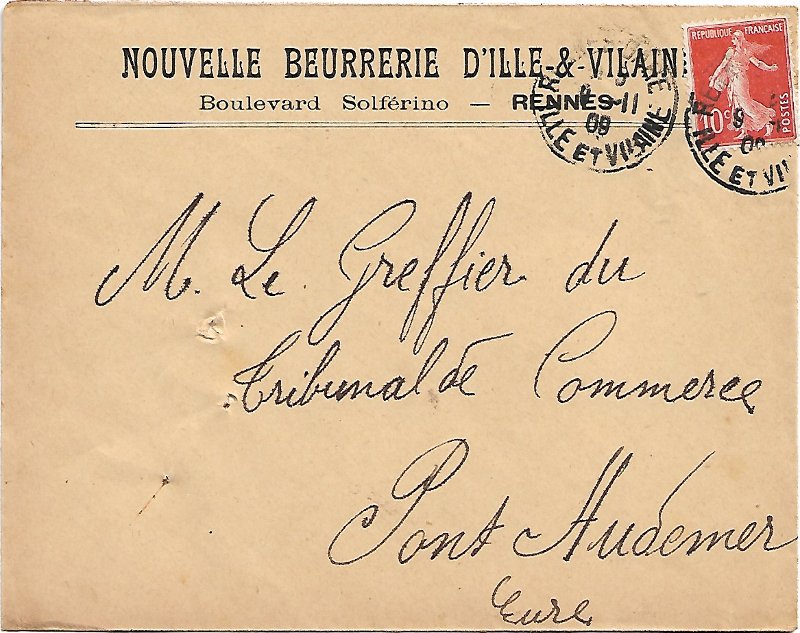 NOUVELLE BEURRERIE D'ILLE-&-VILAINE
Boulevard Solférino — RENNES
RÉPUBLIQUE FRANÇAISE
10c
POSTES
-11
09
ILLE ET VILAINE
9
ILLE ET VIL
M. Le Greffier du
Tribunal de Commerce
Pont Audemer
Eure